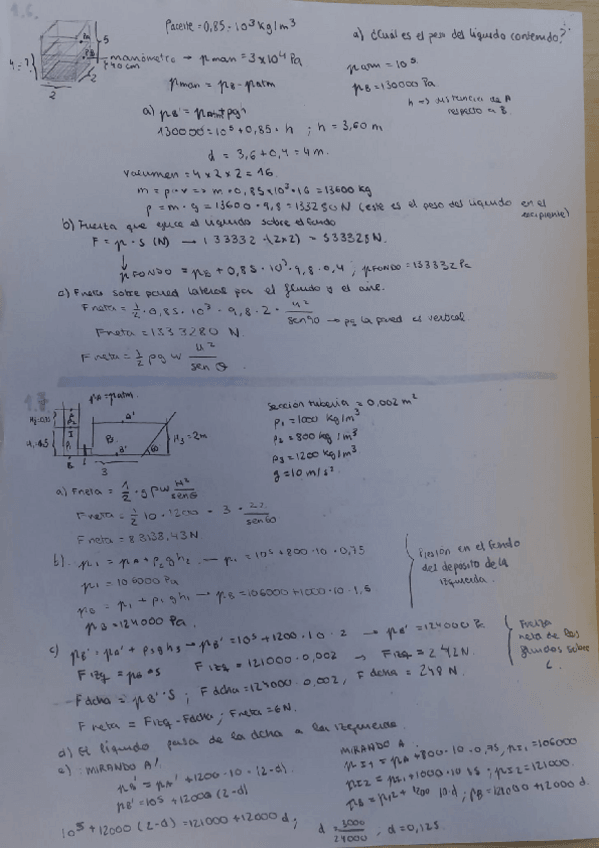 1.6.
ρaceite = 0,85·10³ kg/m³
a) ¿Cual es el peso del líquido contenido?
manómetro → pman = 3×10⁴ Pa
40cm
patm = 10⁵
pman = pB - patm
pB = 130000 Pa.
h → distancia de A respecto a B.
130000 = 10⁵ + 0,85 · h ; h = 3,60 m
d = 3,6 + 0,4 = 4m.
Volumen = 4 × 2 × 2 = 16.
m = ρ · v => m = 0,85×10³·16 = 13600 kg
p = m · g = 13600 · 9,8 = 133280 N (este es el peso del líquido en el recipiente)
b) Fuerza que ejerce el líquido sobre el fondo
F = p · S (N) → 133332 · (2×2) = 533328 N.
pFONDO = pB + 0,85 · 10³ · 9,8 · 0,4 ; pFONDO = 133332 Pa
c) Fneta sobre pared lateral por el fluido y el aire.
Fneta = 1/2 · 0,85 · 10³ · 9,8 · 2 · 4²/sen90 → pq la pared es vertical
Fneta = 1333280 N.
Fneta = 1/2 ρg w H²/sen θ
1.7
pA = patm.
Seccion tuberia = 0,002 m²
ρ1 = 1000 kg/m³
ρ2 = 800 kg/m³
ρ3 = 1200 kg/m³
g = 10 m/s²
H3 = 2m
3
a) Fneta = 1/2 · g ρ w H²/senθ
Fneta = 1/2 10 · 1200 · 3 · 2²/sen60
Fneta = 83138,43 N
b) pI = pA + ρ2 g h2 → pI = 10⁵ + 800 · 10 · 0,75
pI = 106000 Pa
pB = pI + ρ1 g h1 → pB = 106000 + 1000 · 10 · 1,5
pB = 121000 Pa.
Presión en el fondo del deposito de la izquierda.
c) pB' = pA' + ρ3 g h3 → pB' = 10⁵ + 1200 · 10 · 2 → pB' = 124000 Pa
Fizq = pB · S Fizq = 121000 · 0,002 → Fizq = 242N.
Fdcha = pB' · S ; Fdcha = 124000 · 0,002, Fdcha = 248 N.
Fneta = Fizq - Fdcha ; Fneta = 6N.
Fuerza neta de los fluidos sobre
d) El líquido pasa de la dcha a la izquierda.
e) MIRANDO A'.
pB' = pA' + 1200 · 10 · (2-d)
pB' = 10⁵ + 12000 (2-d)
MIRANDO A
pI1 = pA + 800 · 10 · 0,75, pI1 = 106000
pI2 = pI1 + 1000 · 10 · 1,5 ; pI2 = 121000.
pB = pI2 + 1200 · 10 · d ; pB = 121000 + 12000 d.
10⁵ + 12000 (2-d) = 121000 + 12000 d ; d = 3000/24000 , d = 0,125.